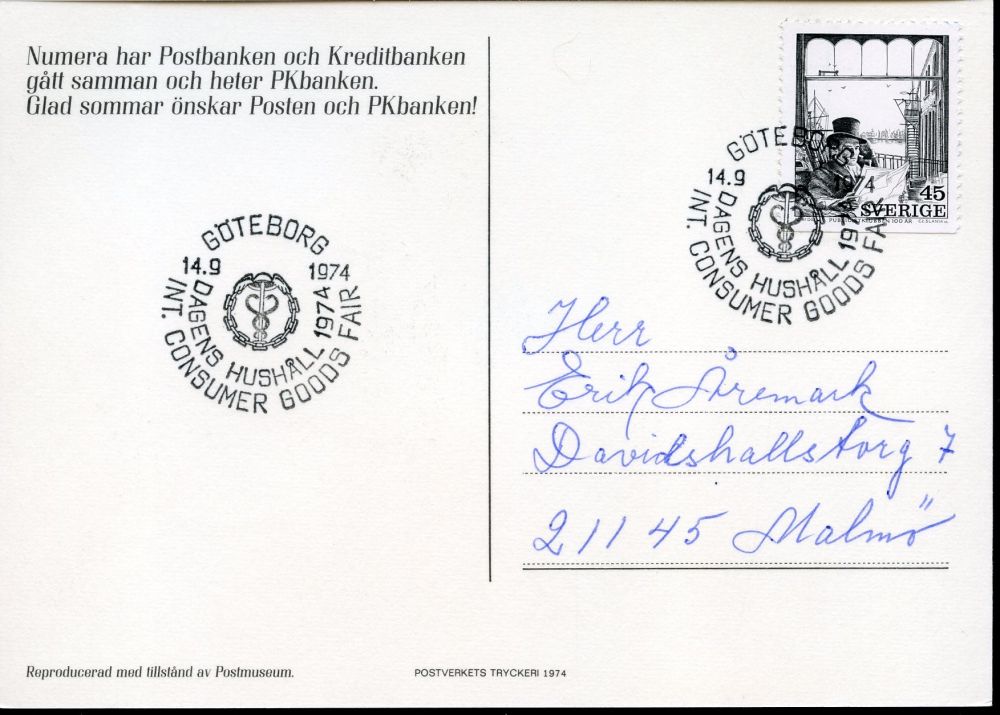 Numera har Postbanken och Kreditbanken
gått samman och heter PKbanken.
Glad sommar önskar Posten och PKbanken!
GÖTEBORG
14.9 1974
DAGENS HUSHÅLL 1974
INT. CONSUMER GOODS FAIR
GÖTEBORG
14.9 1974
DAGENS HUSHÅLL 1974
INT. CONSUMER GOODS FAIR
45
SVERIGE
Herr
Erik Åremark
Davidshallstorg 7
211 45 Malmö
Reproducerad med tillstånd av Postmuseum.
POSTVERKETS TRYCKERI 1974